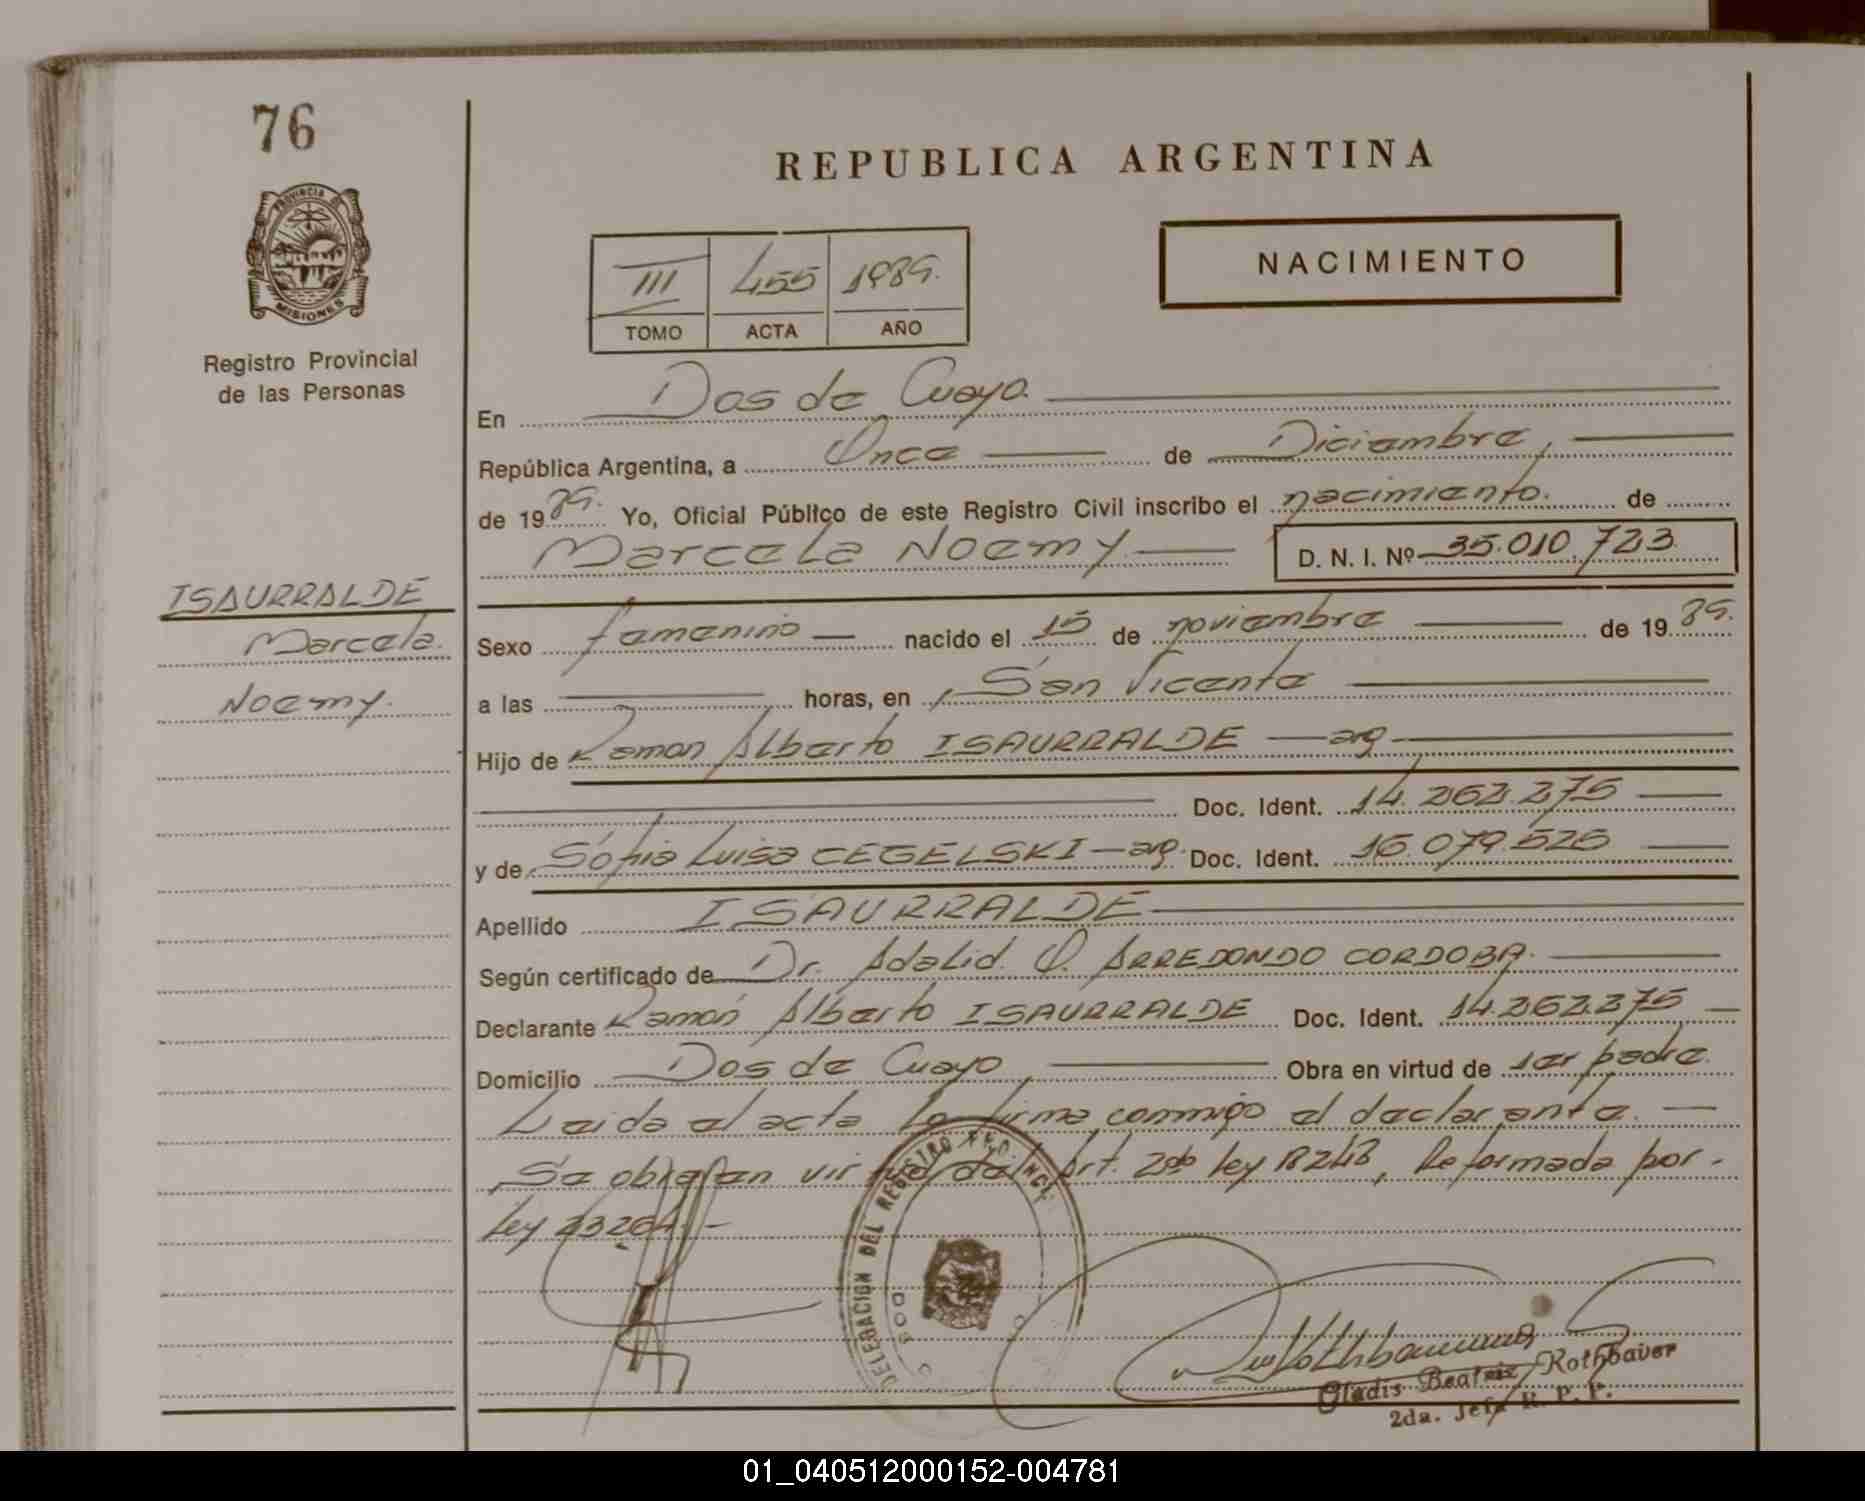 76
REPUBLICA ARGENTINA
PROVINCIA DE
MISIONES
Registro Provincial
de las Personas
III 455 1989.
TOMO ACTA AÑO
NACIMIENTO
En Dos de Mayo.
República Argentina, a Once de Diciembre,
de 1989. Yo, Oficial Público de este Registro Civil inscribo el nacimiento. de
Marcela Noemy D. N. I. Nº 35.010.723
ISAURRALDE
Marcela.
Noemy.
Sexo femenino nacido el 15 de noviembre de 1989.
a las horas, en San Vicente
Hijo de Ramon Alberto ISAURRALDE — arg
Doc. Ident. 14.262.275
y de Sofia Luisa CEGELSKI — arg. Doc. Ident. 16.079.526
Apellido ISAURRALDE
Según certificado de Dr. Adalid. O. ARREDONDO CORDOBA.
Declarante Ramón Alberto ISAURRALDE Doc. Ident. 14.262.275
Domicilio Dos de Mayo Obra en virtud de ser padre.
Leida el acta la firma conmigo el declarante. —
Se obra en virtud del Art. 2do ley 18248, Reformada por -
Ley 23264. -
DELEGACION DEL REGISTRO
Gladis Beatriz Rothbauer
2da. Jefe R. P. P.
01_040512000152-004781